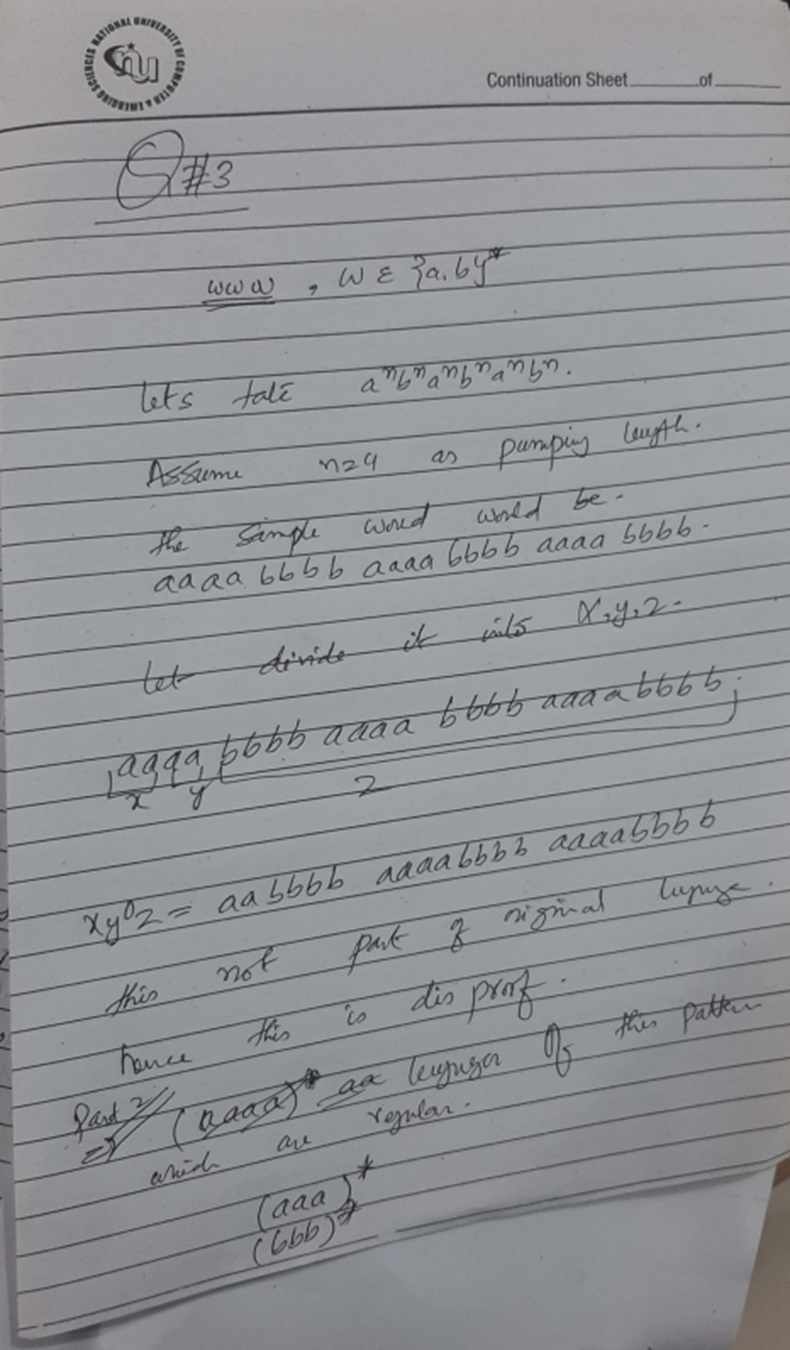 NATIONAL UNIVERSITY OF COMPUTER & EMERGING SCIENCES
nu
Continuation Sheet______of______
Q#3
www , W ε {a,b}*
lets take aⁿbⁿaⁿbⁿaⁿbⁿ.
Assume n=4 as pumping length.
the simple word would be.
aaaa bbbb aaaa bbbb aaaa bbbb.
let divide it into x,y,z.
aaaa bbbb aaaa bbbb aaaa bbbb.
x y z
xy⁰z = aabbbb aaaabbbb aaaabbbb
this not part of original
hence this is dis proof.
Part 2
=> (aaaa)* aa of this pattern
which are regular.
(aaa)*
(bbb)*